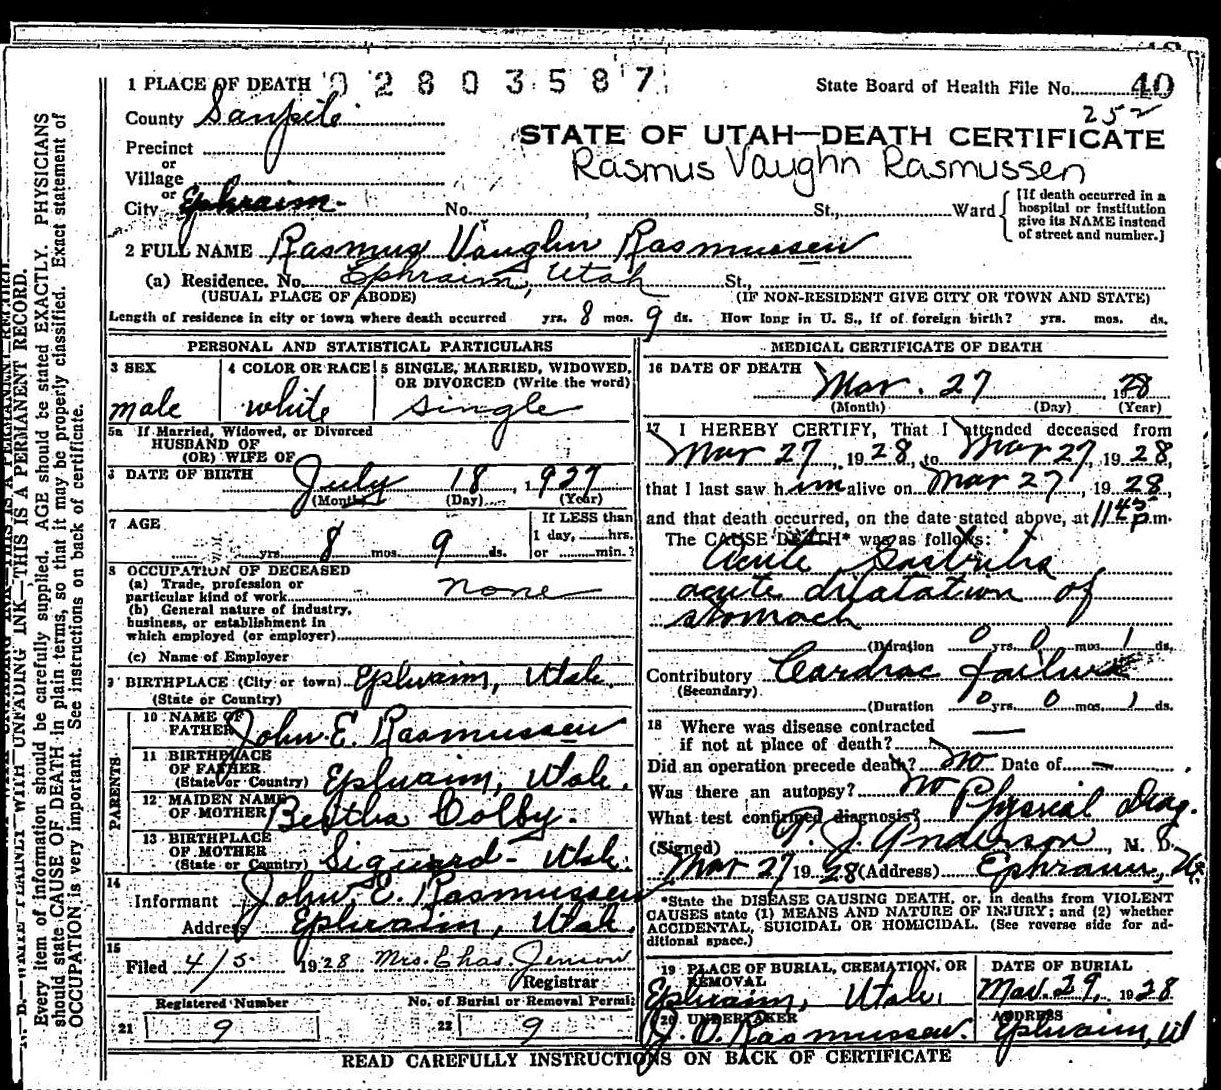 1 PLACE OF DEATH 0 2 8 0 3 5 8 7 State Board of Health File No. 40
252
County Sanpete
STATE OF UTAH—DEATH CERTIFICATE
Precinct
Rasmus Vaughn Rasmussen
or
Village
or
City Ephraim. No. , St., Ward [If death occurred in a hospital or institution give its NAME instead of street and number.]
2 FULL NAME Rasmus Vaughn Rasmussen
(a) Residence. No. Ephraim, Utah St.,
(USUAL PLACE OF ABODE) (IF NON-RESIDENT GIVE CITY OR TOWN AND STATE)
Length of residence in city or town where death occurred yrs. 8 mos. 9 ds. How long in U. S., if of foreign birth? yrs. mos. ds.
PERSONAL AND STATISTICAL PARTICULARS
3 SEX
male
4 COLOR OR RACE
white
5 SINGLE, MARRIED, WIDOWED, OR DIVORCED (Write the word)
single
5a If Married, Widowed, or Divorced
HUSBAND OF
(OR) WIFE OF
6 DATE OF BIRTH July 18, 1927
(Month) (Day) (Year)
7 AGE
yrs. 8 mos. 9 ds.
If LESS than
1 day, hrs.
or min.?
8 OCCUPATION OF DECEASED
(a) Trade, profession or
particular kind of work none
(b) General nature of industry,
business, or establishment in
which employed (or employer)
(c) Name of Employer
9 BIRTHPLACE (City or town) Ephraim, Utah.
(State or Country)
PARENTS
10 NAME OF
FATHER John E. Rasmussen
11 BIRTHPLACE
OF FATHER
(State or Country) Ephraim, Utah.
12 MAIDEN NAME
OF MOTHER Bertha Colby.
13 BIRTHPLACE
OF MOTHER
(State or Country) Sigurard- Utah.
14
Informant John E. Rasmussen
Address Ephraim, Utah.
15
Filed 4/5 1928 Mrs. Chas. Jenson
Registrar
Registered Number No. of Burial or Removal Permit
21 9 22 9
MEDICAL CERTIFICATE OF DEATH
16 DATE OF DEATH Mar. 27 1928
(Month) (Day) (Year)
17 I HEREBY CERTIFY, That I attended deceased from
Mar 27, 1928, to Mar 27, 1928,
that I last saw him alive on Mar 27, 1928,
and that death occurred, on the date stated above, at 11 45 p.m.
The CAUSE DEATH* was as follows:
Acute Gastritis
acute dilatation of
stomach
(Duration 0 yrs. 0 mos. 1 ds.
Contributory Cardiac failure
(Secondary)
(Duration 0 yrs. 0 mos. 1 ds.
18 Where was disease contracted
if not at place of death? —
Did an operation precede death? No Date of —
Was there an autopsy? No
What test confirmed diagnosis? Physical Diag.
(Signed) P. J. Anderson, M. D.
Mar 27 1928 (Address) Ephraim, Ut.
*State the DISEASE CAUSING DEATH, or, in deaths from VIOLENT
CAUSES state (1) MEANS AND NATURE OF INJURY; and (2) whether
ACCIDENTAL, SUICIDAL OR HOMICIDAL. (See reverse side for ad-
ditional space.)
19 PLACE OF BURIAL, CREMATION, OR
REMOVAL
Ephraim, Utah.
DATE OF BURIAL
Mar. 29, 1928
20 UNDERTAKER
J. O. Rasmussen.
ADDRESS
Ephraim, U
READ CAREFULLY INSTRUCTIONS ON BACK OF CERTIFICATE
Every item of information should be carefully supplied. AGE should be stated EXACTLY. PHYSICIANS
should state CAUSE OF DEATH in plain terms, so that it may be properly classified. Exact statement of
OCCUPATION is very important. See instructions on back of certificate.
WITH UNFADING INK—THIS IS A PERMANENT RECORD.